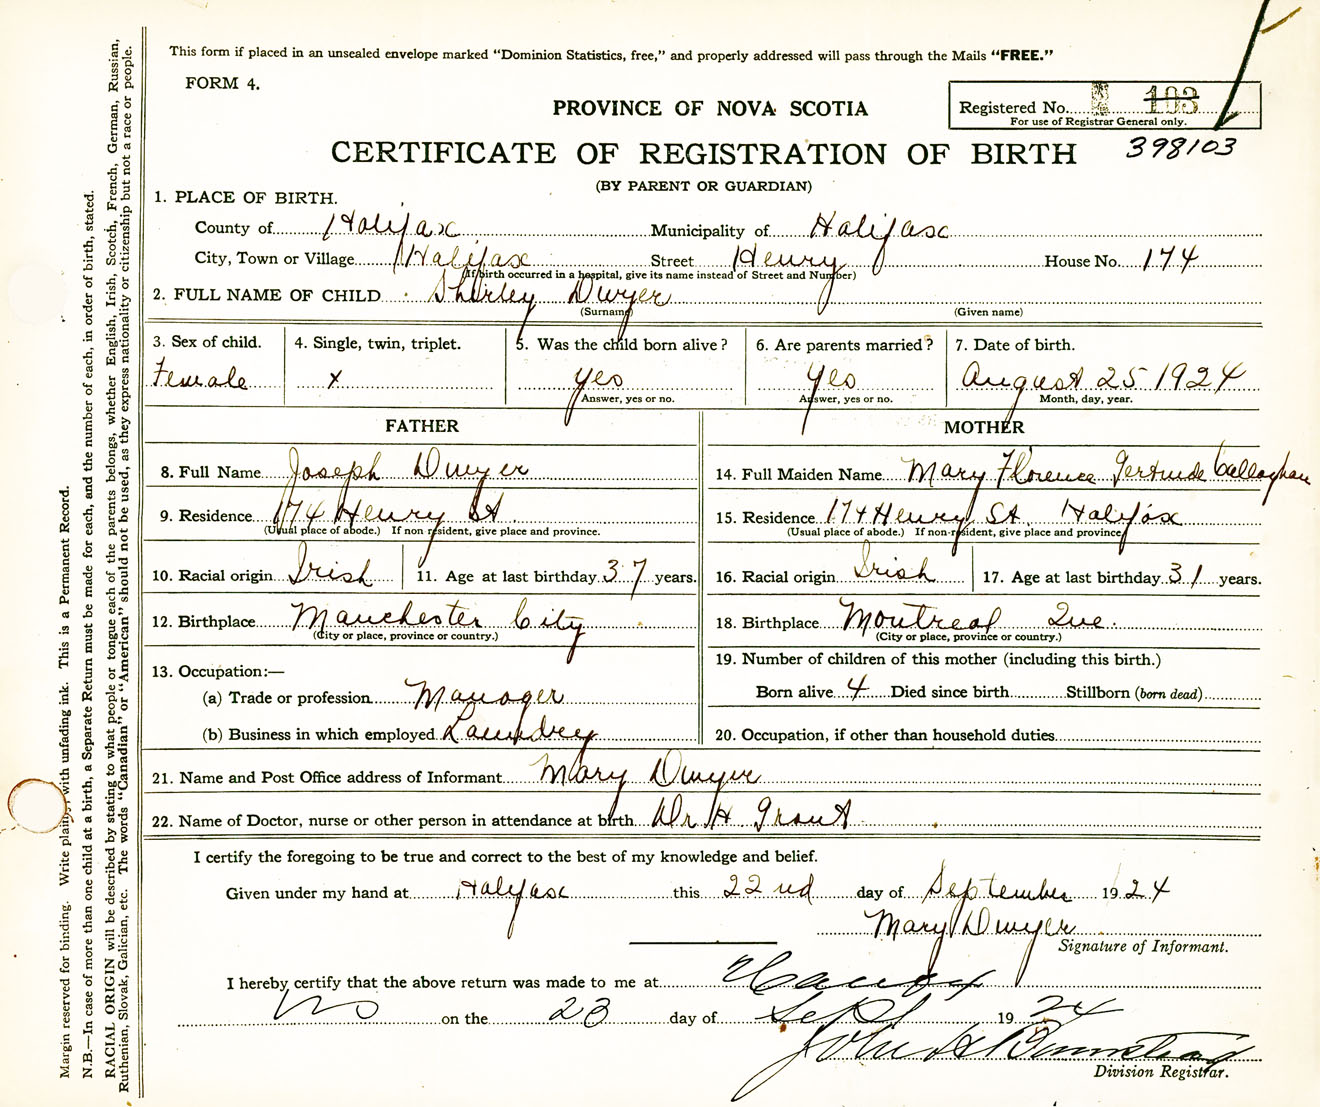 This form if placed in an unsealed envelope marked “Dominion Statistics, free,” and properly addressed will pass through the Mails “FREE.”
FORM 4.
PROVINCE OF NOVA SCOTIA
Registered No. 103
For use of Registrar General only.
398103
CERTIFICATE OF REGISTRATION OF BIRTH
(BY PARENT OR GUARDIAN)
1. PLACE OF BIRTH.
County of Halifax Municipality of Halifax
City, Town or Village Halifax Street Henry House No. 174
(If birth occurred in a hospital, give its name instead of Street and Number)
2. FULL NAME OF CHILD Shirley Dwyer
(Surname) (Given name)
3. Sex of child. 4. Single, twin, triplet. 5. Was the child born alive? 6. Are parents married? 7. Date of birth.
Female x Yes Yes August 25 1924
Answer, yes or no. Answer, yes or no. Month, day, year.
FATHER
8. Full Name Joseph Dwyer
9. Residence 174 Henry St.
(Usual place of abode.) If non resident, give place and province.
10. Racial origin Irish 11. Age at last birthday 37 years.
12. Birthplace Manchester City
(City or place, province or country.)
13. Occupation:—
(a) Trade or profession Manager
(b) Business in which employed Laundrey
MOTHER
14. Full Maiden Name Mary Florence Gertrude Callaghan
15. Residence 174 Henry St. Halifax
(Usual place of abode.) If non-resident, give place and province
16. Racial origin Irish 17. Age at last birthday 31 years.
18. Birthplace Montreal Que.
(City or place, province or country.)
19. Number of children of this mother (including this birth.)
Born alive 4 Died since birth Stillborn (born dead)
20. Occupation, if other than household duties
21. Name and Post Office address of Informant Mary Dwyer
22. Name of Doctor, nurse or other person in attendance at birth Dr H Grant
I certify the foregoing to be true and correct to the best of my knowledge and belief.
Given under my hand at Halifax this 22nd day of September 1924
Mary Dwyer
Signature of Informant.
I hereby certify that the above return was made to me at Halifax
NS on the 23 day of Sept 1924
John H
Division Registrar.
Margin reserved for binding. Write plainly, with unfading ink. This is a Permanent Record.
N.B.—In case of more than one child at a birth, a Separate Return must be made for each, and the number of each, in order of birth, stated.
RACIAL ORIGIN will be described by stating to what people or tongue each of the parents belongs, whether English, Irish, Scotch, French, German, Russian,
Ruthenian, Slovak, Galician, etc. The words “Canadian” or “American” should not be used, as they express nationality or citizenship but not a race or people.